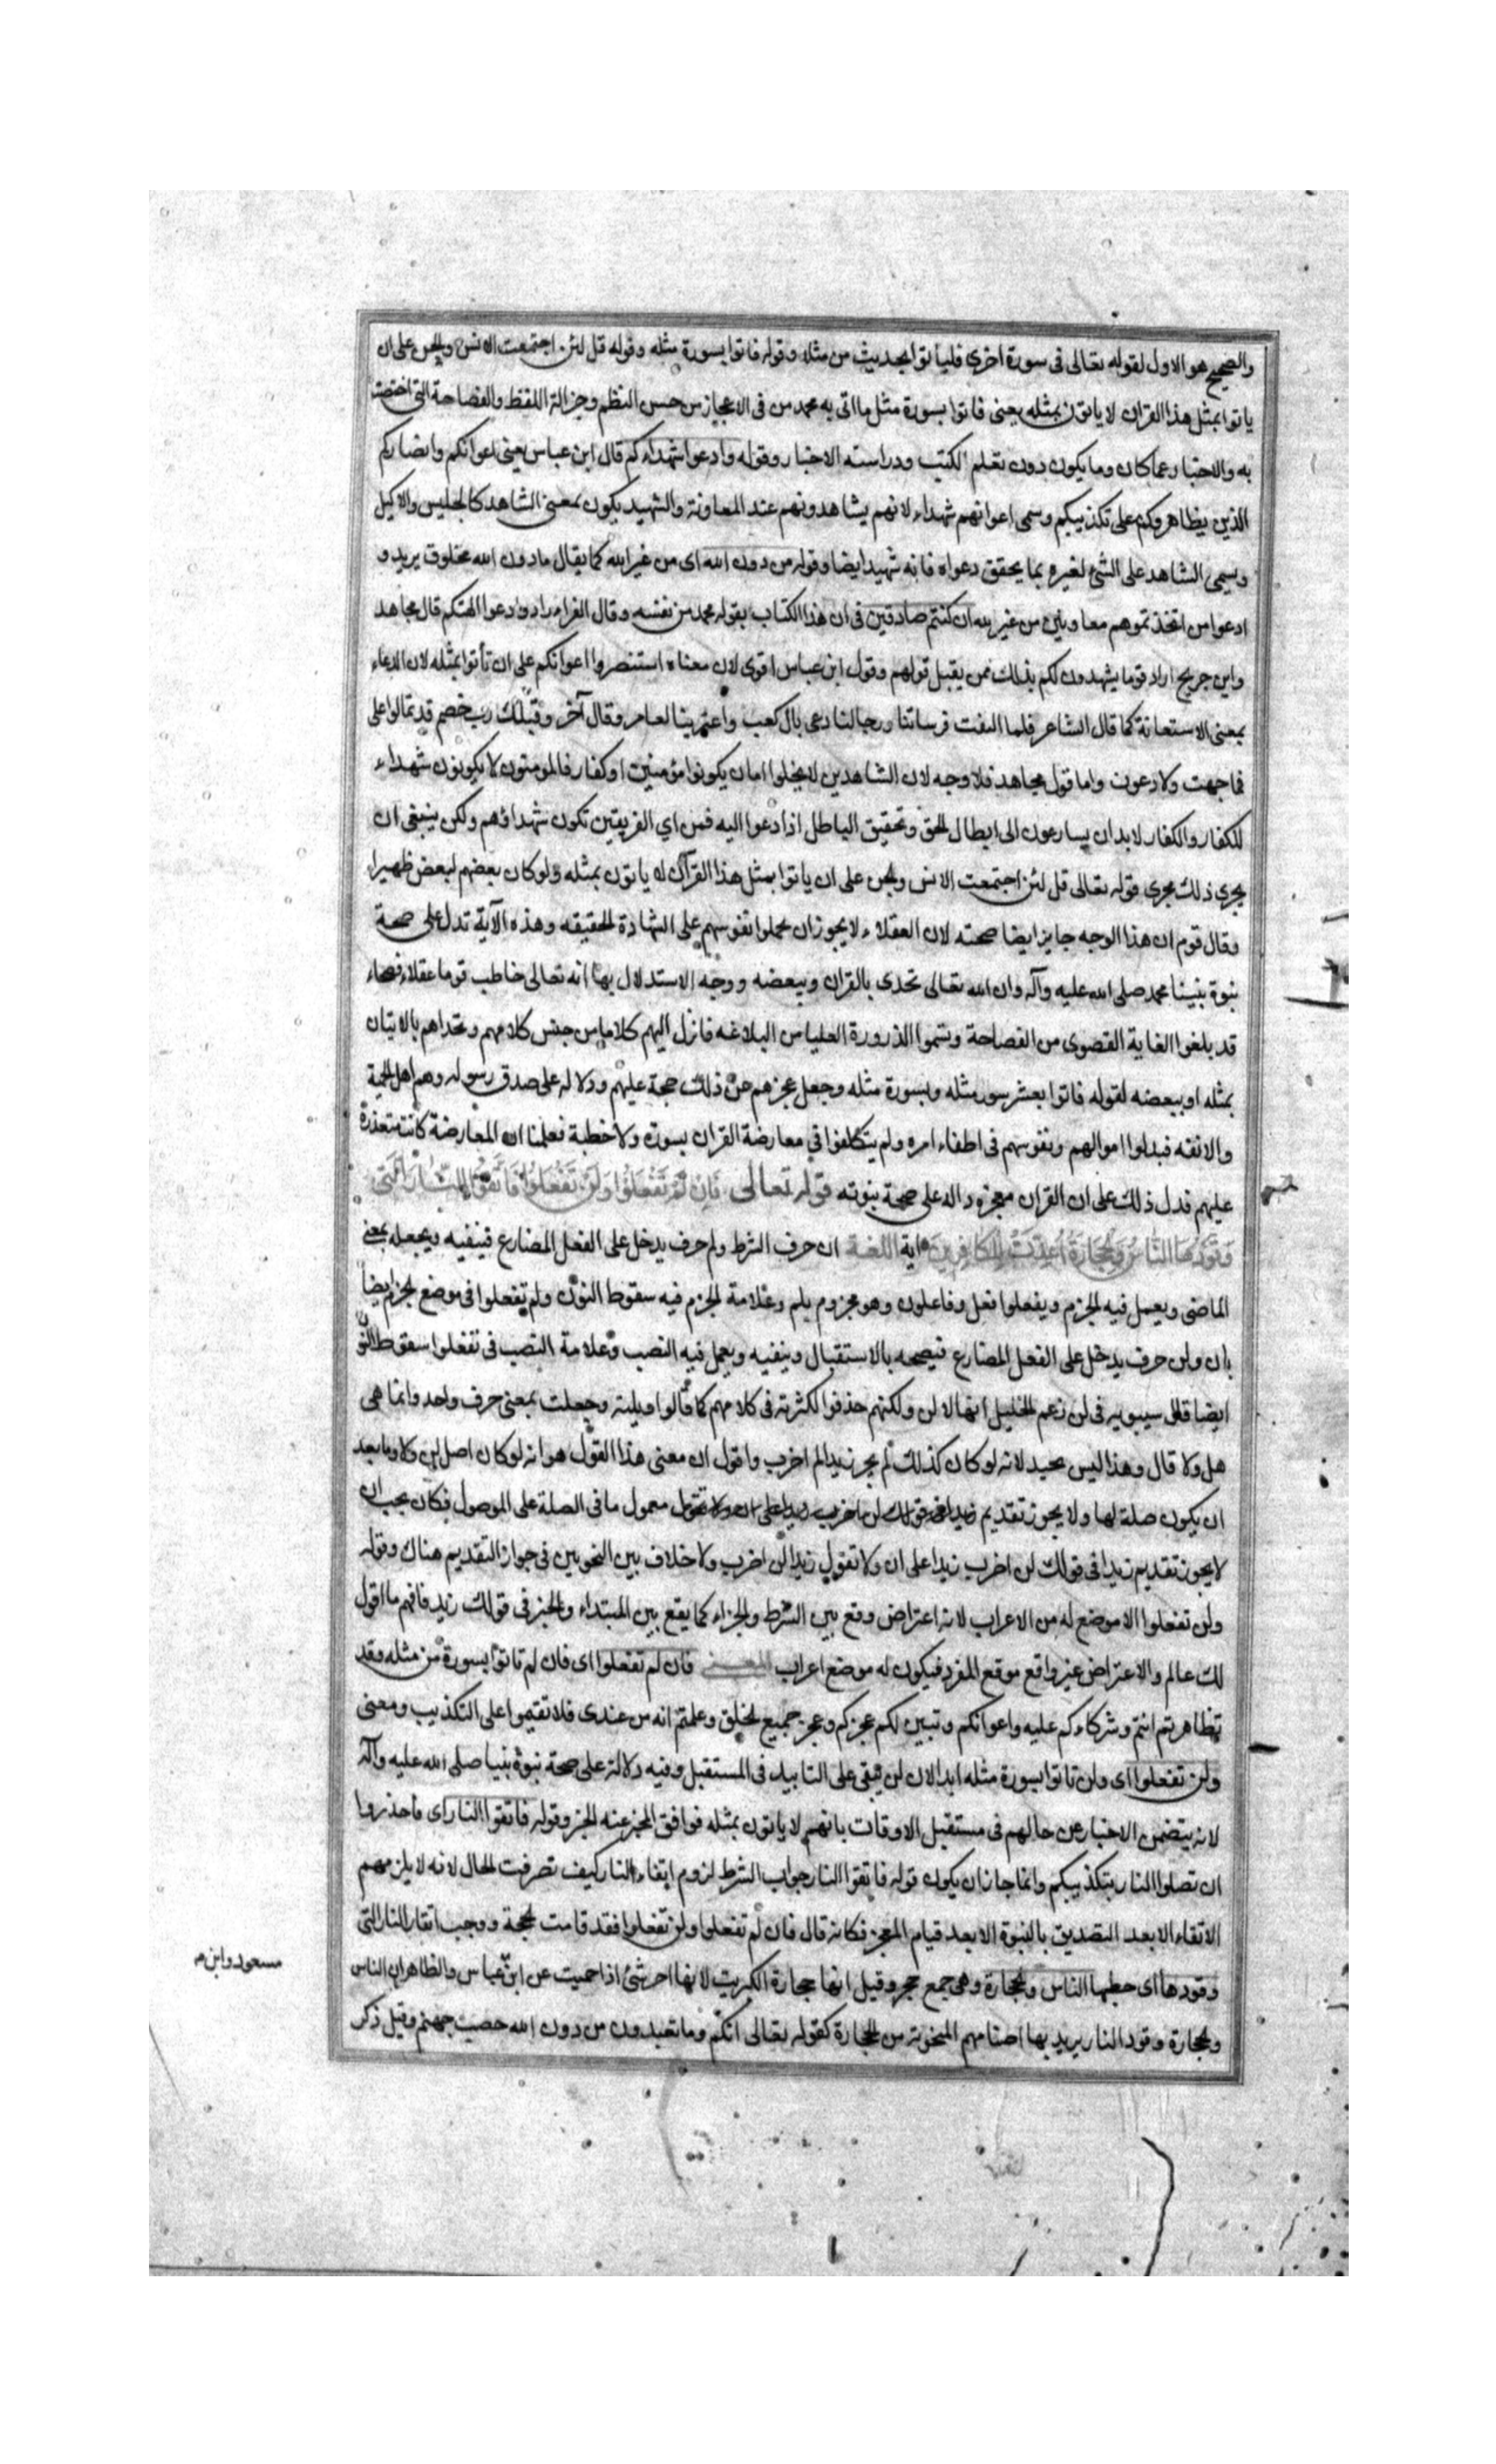 والصحيح هو الاول لقوله تعالى فى سورة اخرى فلياتوا بحديث من مثله وقوله فاتوا بسورة مثله وقوله قل لئن اجتمعت الانس والجن على ان
ياتوا بمثل هذا القران لا ياتون بمثله يعنى فاتوا بسورة مثل ما اتى به محمد من فى الاعجاز من حسن النظم وجزالة اللفظ والفصاحة التى اختصت
به والاخبار عما كان وما يكون دون تعلم الكتب ودراسته الاخبار وقوله وادعوا شهداءكم قال ابن عباس يعنى اعوانكم وانصاركم
الذين يظاهروكم على تكذيبكم وسمى اعوانهم شهداء لانهم يشاهدونهم عند المعاونة والشهيد يكون بمعنى الشاهد كالجليس والاكيل
ويسمى الشاهد على الشئ لغيره بما يحقق دعواه فانه شهيد ايضا وقوله من دون الله اى من غير الله كما يقال مادون الله مخلوق يريد و
ادعوا من اتخذتموهم معاونين من غير الله ان كنتم صادقين فى ان هذا الكتاب يقوله محمد من نفسه وقال الفراء اراد وادعوا الهتكم قال مجاهد
وابن جريج اراد قوما يشهدون لكم بذلك ممن يقبل قولهم وقول ابن عباس اقوى لان معناه استنصروا اعوانكم على ان تأتوا بمثله لان الدعاء
بمعنى الاستعانة كما قال الشاعر فلما التقت فرساننا ورجالنا دعى بال كعب واعتزينا لعامر وقال آخر وقبلك رب خصم قد تمالوا على
فما جهت ولا دعوت واما قول مجاهد فلا وجه لان الشاهدين لا يخلوا اما ان يكونوا مؤمنين او كفار فالمومنون لا يكونون شهداء
للكفار والكفار لابد ان يسارعون الى ابطال الحق وتحقيق الباطل اذا دعوا اليه فمن اي الفريقين تكون شهداؤهم ولكن ينبغى ان
يجرى ذلك مجرى قوله تعالى قل لئن اجتمعت الانس والجن على ان ياتوا بمثل هذا القرآن لا ياتون بمثله ولو كان بعضهم لبعض ظهيرا
وقال قوم ان هذا الوجه جايز ايضا صحته لان العقلاء لا يجوز ان يحملوا نفوسهم على الشهادة الحقيقه وهذه الآية تدل على صحة
نبوة نبينا محمد صلى الله عليه وآله وان الله تعالى تحدى بالقران وببعضه ووجه الاستدلال بها انه تعالى خاطب قوما عقلاء فصحاء
قد بلغوا الغاية القصوى من الفصاحة وتسموا الذرورة العليا من البلاغه فانزل اليهم كلاما من جنس كلامهم وتحداهم بالاتيان
بمثله او ببعضه لقوله فاتوا بعشر سور مثله وبسورة مثله وجعل عجزهم عن ذلك حجة عليهم ودلاله على صدق رسوله وهم اهل الحمية
والانفه فبدلوا اموالهم ونفوسهم فى اطفاء امره ولم يتكلفوا فى معارضة القران بسورة ولا خطبة فعلمنا ان المعارضة كانت متعذرة
عليهم فدل ذلك على ان القران معجزه داله على صحة نبوته قوله تعالى فَاِنْ لَمْ تَفْعَلُوا وَلَنْ تَفْعَلُوا فَاتَّقُوا النَّارَ الَّتى
وَقُودُهَا النَّاسُ وَالْحِجَارَةُ اُعِدَّتْ لِلْكَافِرِينَ اية اللغة ان حرف الشرط ولم حرف يدخل على الفعل المضارع فينفيه ويجعله بمعنى
الماضى ويعمل فيه الجزم ويفعلوا فعل وفاعلون وهو مجزوم بلم وعلامة الجزم فيه سقوط النون ولم يفعلوا فى موضع الجزم ايضا
بان ولن حرف يدخل على الفعل المضارع فيصحه بالاستقبال وينفيه ويعمل فيه النصب وعلامة النصب فى تفعلوا سقوط النون
ايضا قال سيبويه فى لن زعم الخليل انها لا لن ولكنهم حذفوا لكثرته فى كلامهم كما قالوا ويلمه وجعلت بمعنى حرف واحد وانما هى
هل ولا قال وهذا ليس بجيد لانه لو كان كذلك لم يجز زيدا لم اضرب واقول ان معنى هذا القول هو انه لو كان اصل لن ولا وما بعد
ان يكون صلة لها ولا يجوز تقديم معمول ما فى الصلة على الموصول فكان يجب ان
لا يجوز تقديم زيدا فى قولك لن اضرب زيدا على ان ولا تقول زيدا لن اضرب ولا خلاف بين النحويين فى جواز التقديم هناك وقوله
ولن تفعلوا لا موضع له من الاعراب لانه اعتراض وقع بين الشرط والجزاء كما يقع بين المبتداء والخبر فى قولك زيد فافهم ما اقول
لك عالم والاعتراض غير واقع موقع المفرد فيكون له موضع اعراب المعنى فان لم تفعلوا اى فان لم تاتوا بسورة من مثله وقد
تظاهرتم انتم وشركاءكم عليه واعوانكم وتبين لكم عجزكم وعجز جميع الخلق وعلمتم انه من عندى فلا تقيموا على التكذيب ومعنى
ولن تفعلوا اى ولن تاتوا بسورة مثله ابدا لان لن يبقى على التابيد فى المستقبل وفيه دلالة على صحة نبوة نبينا صلى الله عليه وآله
لانه يتضمن الاخبار عن حالهم فى مستقبل الاوقات بانهم لا ياتون بمثله فوافق المخبر عنه الخبر وقوله فاتقوا النار اى فاحذروا
ان تصلوا النار بتكذيبكم وانما جاز ان يكون قوله فاتقوا النار جواب الشرط لزوم اتقاء النار كيف تصرفت الحال لانه لا يلزمهم
الاتقاء الا بعد التصديق بالنبوة الا بعد قيام المعجز فكانه قال فان لم تفعلوا ولن تفعلوا فقد قامت الحجة ووجب اتقاء النار التى
وقودها اى حطبها الناس والحجارة وهى جمع حجر وقيل انها حجارة الكبريت لانها احر شئ اذا حميت عن ابن عباس والظاهر ان الناس
والحجارة وقود النار يريد بها اصنامهم المنحوتة من الحجارة كقوله تعالى انكم وما تعبدون من دون الله حصب جهنم وقيل ذكر
مسعود وابن م